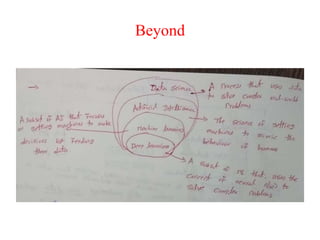 Beyond
Data Science
A Process that uses data
to solve complex real-world
Problems
Artificial Intelligence
The science of getting
machines to mimic the
behaviour of humans
A subset of AI that focuses
on getting machines to make
decisions by feeding
them data
Machine learning
Deep learning
A subset of ML that uses the
concept of neural
solve complex problems